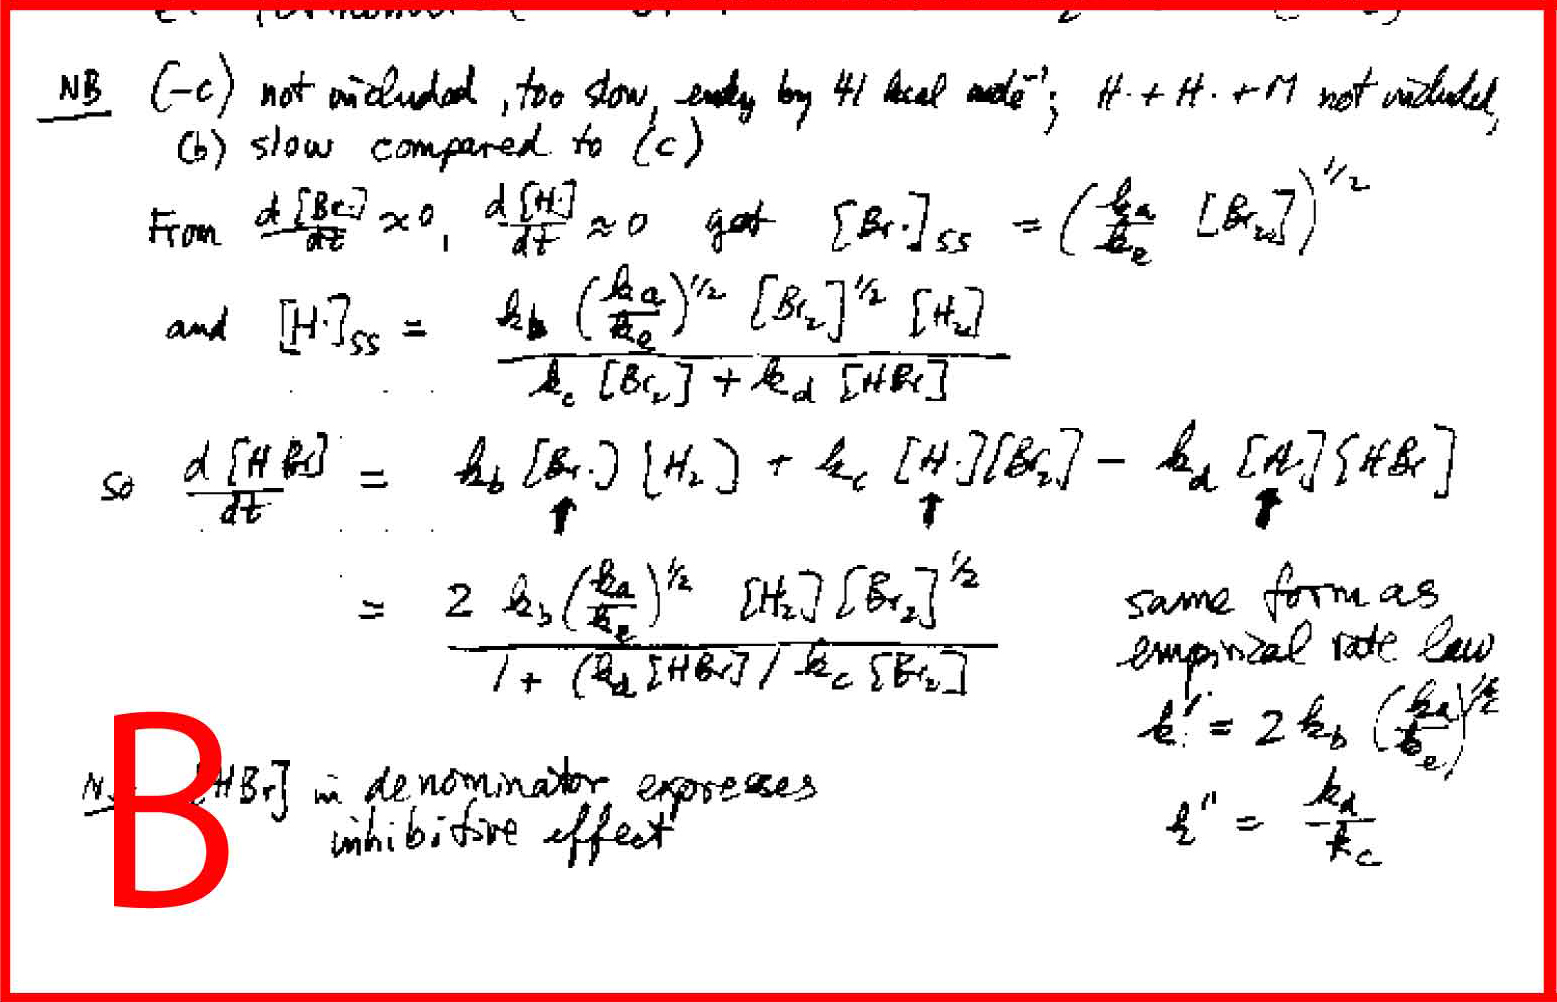 NB (-c) not included, too slow, endo by 41 kcal mole⁻¹; H· + H· + M not included,
(b) slow compared to (c)
From d[Br·]/dt ≈ 0, d[H·]/dt ≈ 0 get [Br·]ss = (ka/ke [Br₂])^1/2
and [H·]ss = kb (ka/ke)^1/2 [Br₂]^1/2 [H₂] / kc [Br₂] + kd [HBr]
so d[HBr]/dt = kb [Br·] [H₂] + kc [H·][Br₂] - kd [H·][HBr]
= 2 kb (ka/ke)^1/2 [H₂][Br₂]^1/2 / 1 + (kd [HBr] / kc [Br₂]
same form as
empirical rate law
k' = 2 kb (ka/ke)^1/2
k'' = kd/kc
[HBr] in denominator expresses
inhibitive effect
B